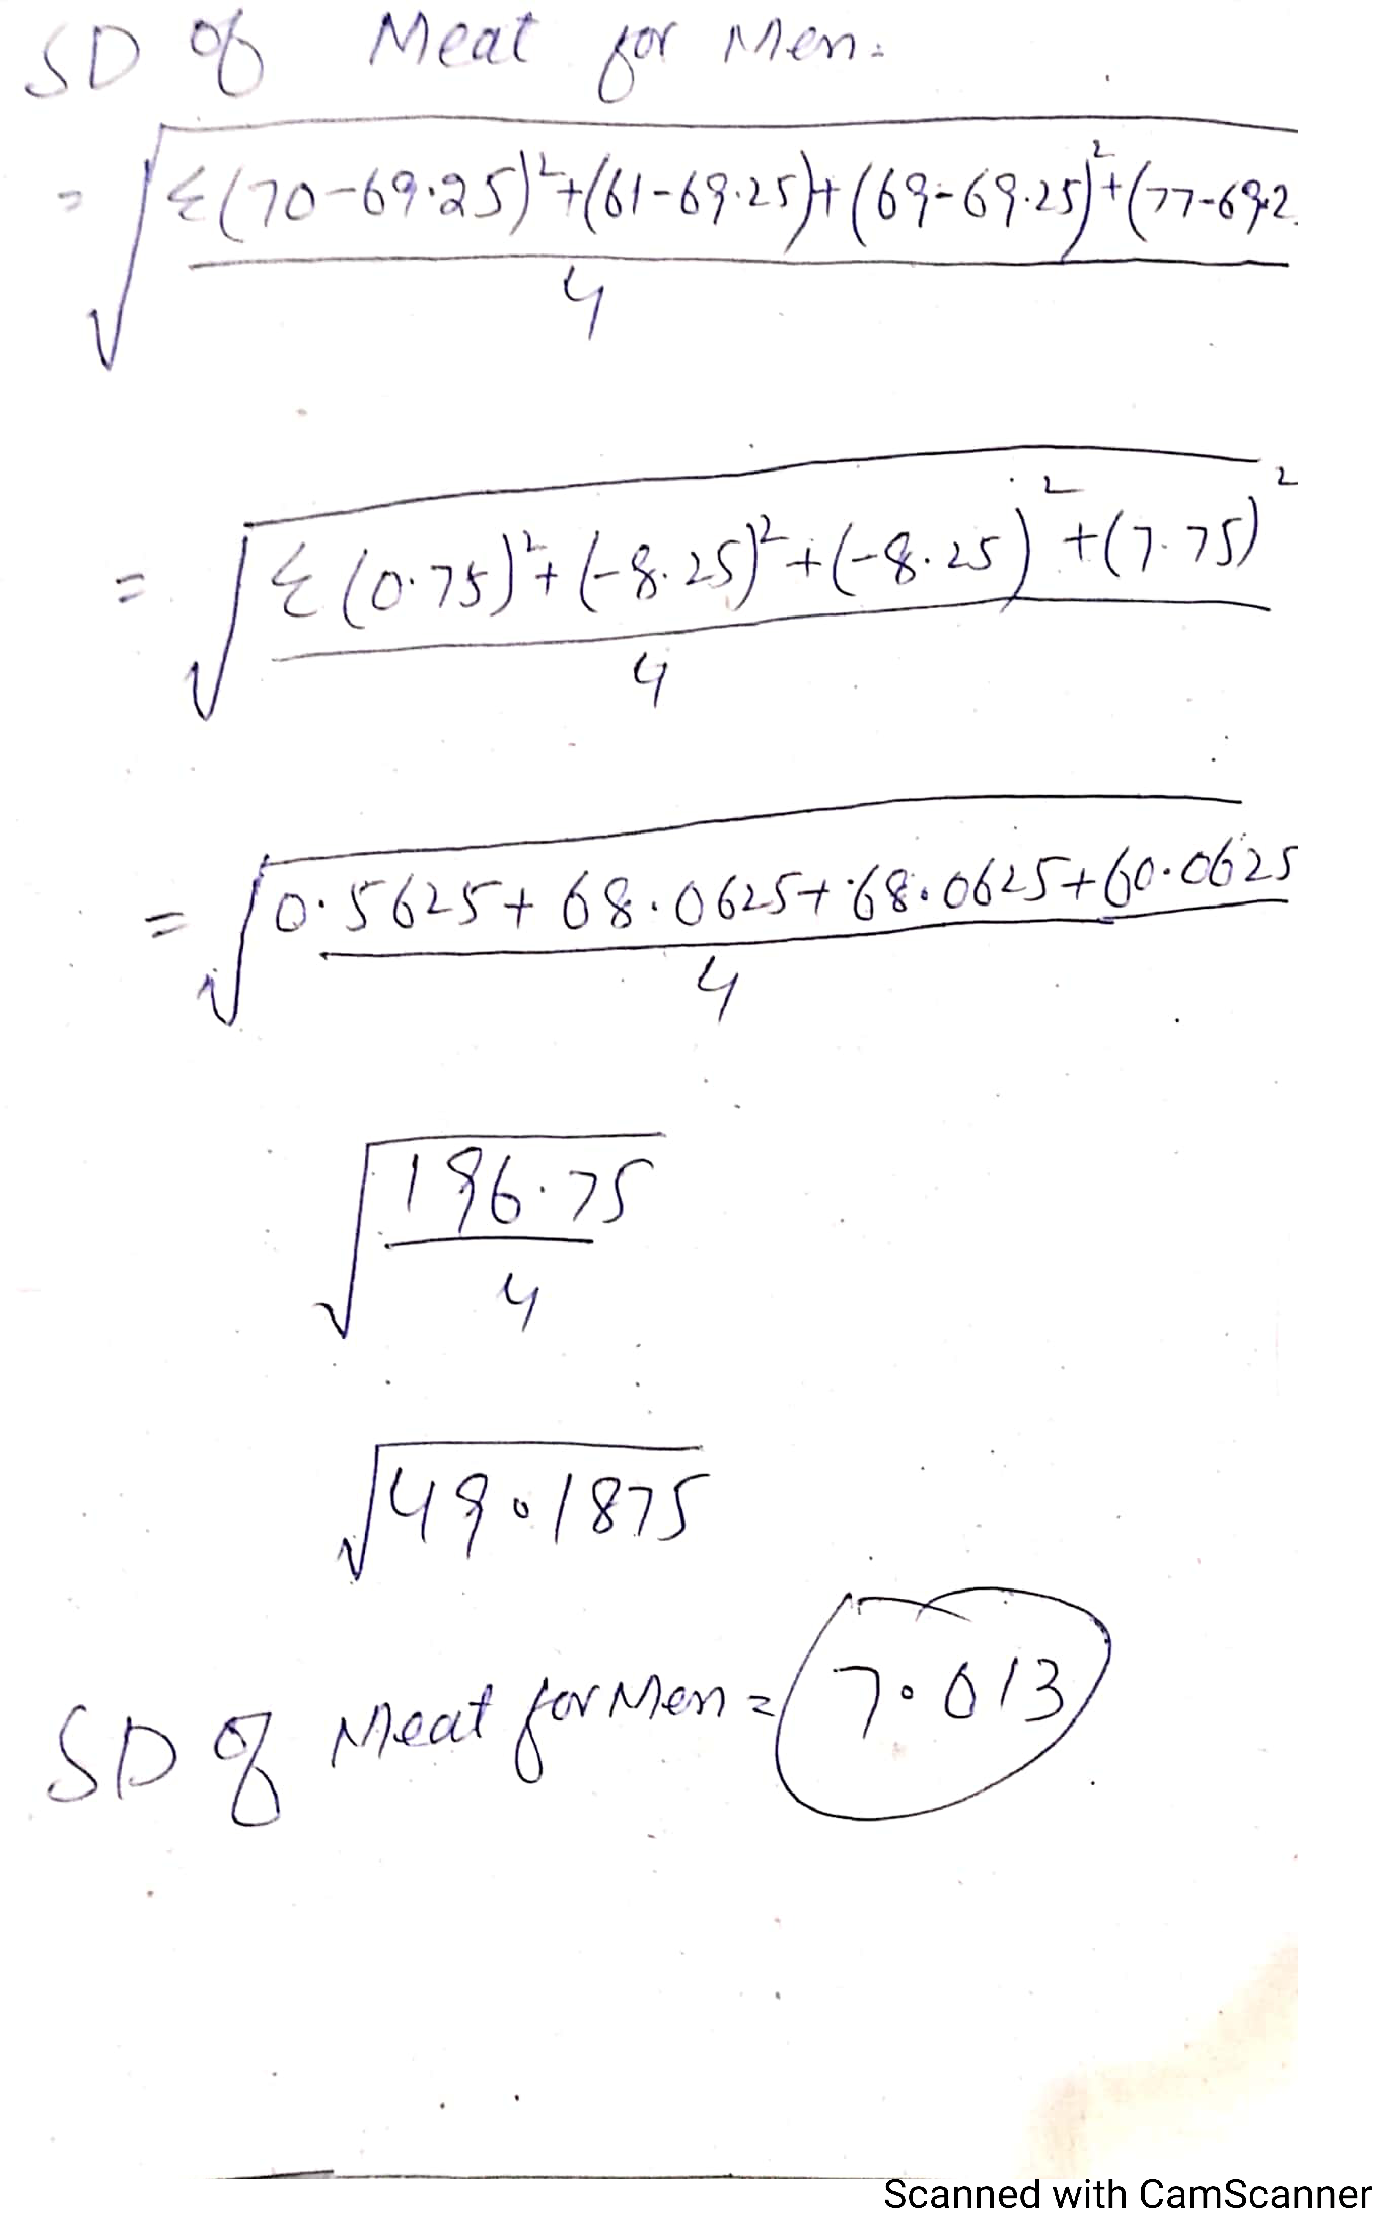 SD of Meat for Men:
= √ Σ(70-69.25)²+(61-69.25)+(69-69.25)²+(77-69.2
4
= √ Σ(0.75)²+(-8.25)²+(-8.25)²+(7.75)²
4
= √ 0.5625+68.0625+68.0625+60.0625
4
√ 196.75
4
√49.1875
SD of Meat for Men = 7.013
Scanned with CamScanner